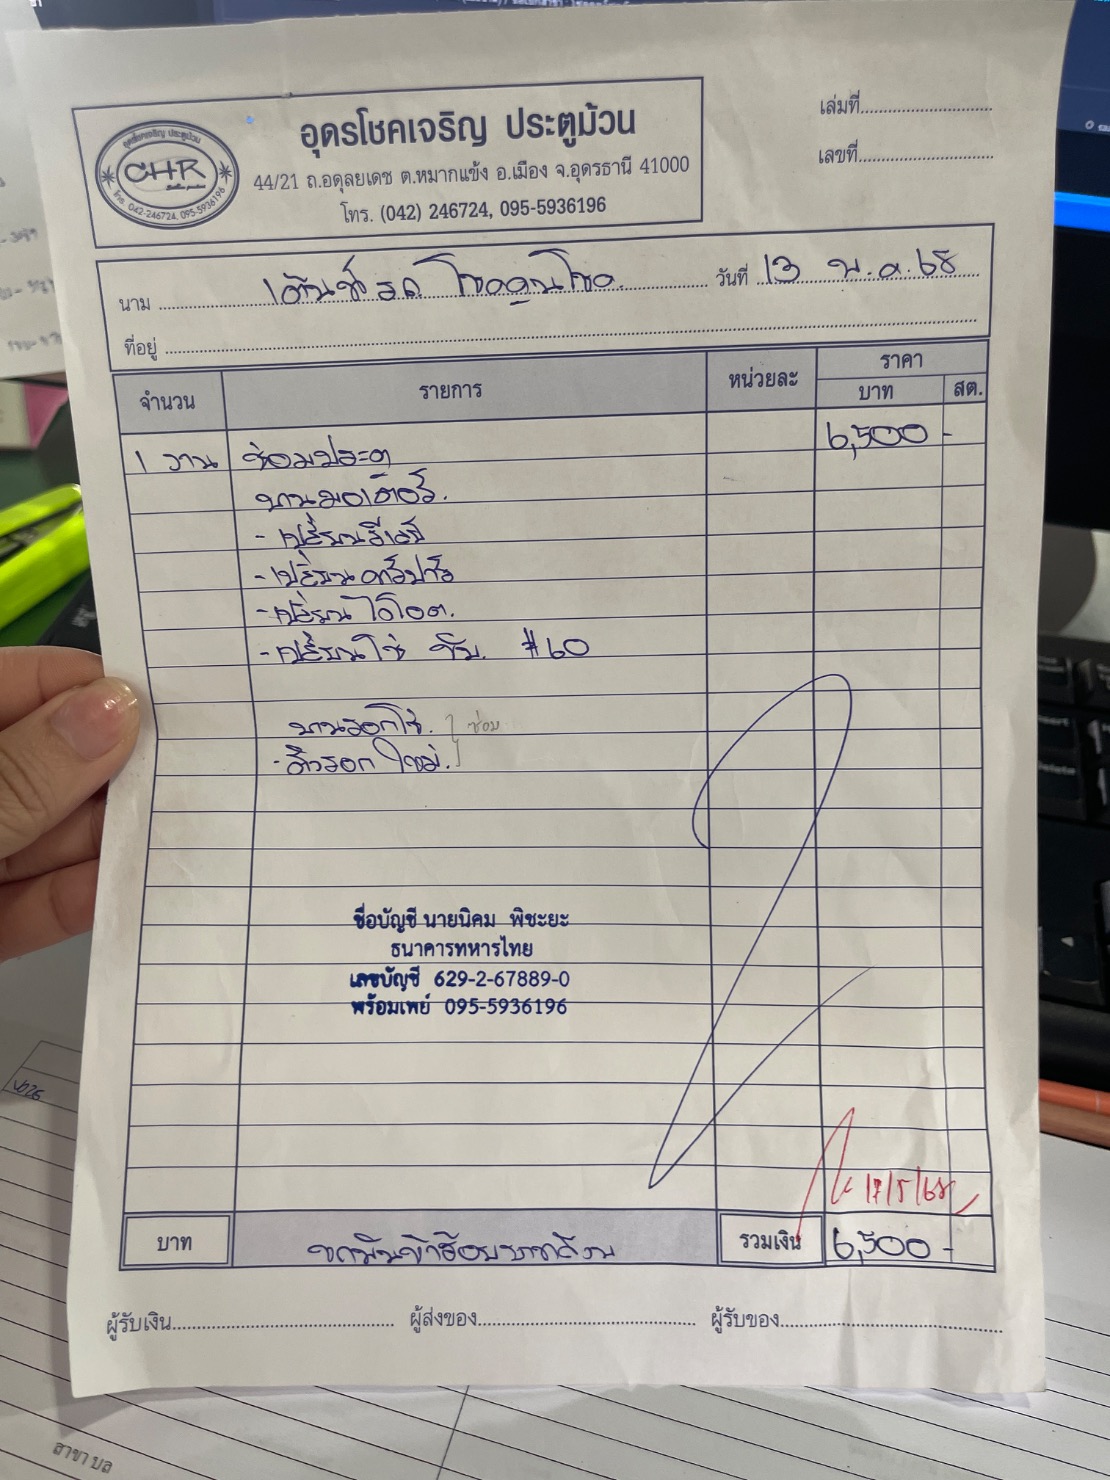 เล่มที่
เลขที่
อุดรโชคเจริญ ประตูม้วน
44/21 ถ.อดุลยเดช ต.หมากแข้ง อ.เมือง จ.อุดรธานี 41000
โทร. (042) 246724, 095-5936196
อุดรโชคเจริญ ประตูม้วน
CHR
โทร. 042-246724, 095-5936196
นาม เต้นท์รถ โชคคูณโชค วันที่ 13 พ.ค. 68
ที่อยู่
จำนวน รายการ หน่วยละ ราคา
บาท สต.
1 งาน ซ่อมประตู 6,500 -
งานมอเตอร์.
- เปลี่ยนรีเลย์
- เปลี่ยน
- เปลี่ยนไดโอด.
- เปลี่ยนโซ่ ขับ. #60
งานรอกโซ่. ซ่อม
- ตัวรอก ใหม่.
ชื่อบัญชี นายนิคม พิชะยะ
ธนาคารทหารไทย
เลขบัญชี 629-2-67889-0
พร้อมเพย์ 095-5936196
17/5/68
บาท หกพันห้าร้อยบาทถ้วน รวมเงิน 6,500 -
ผู้รับเงิน ผู้ส่งของ ผู้รับของ
สาขา บล